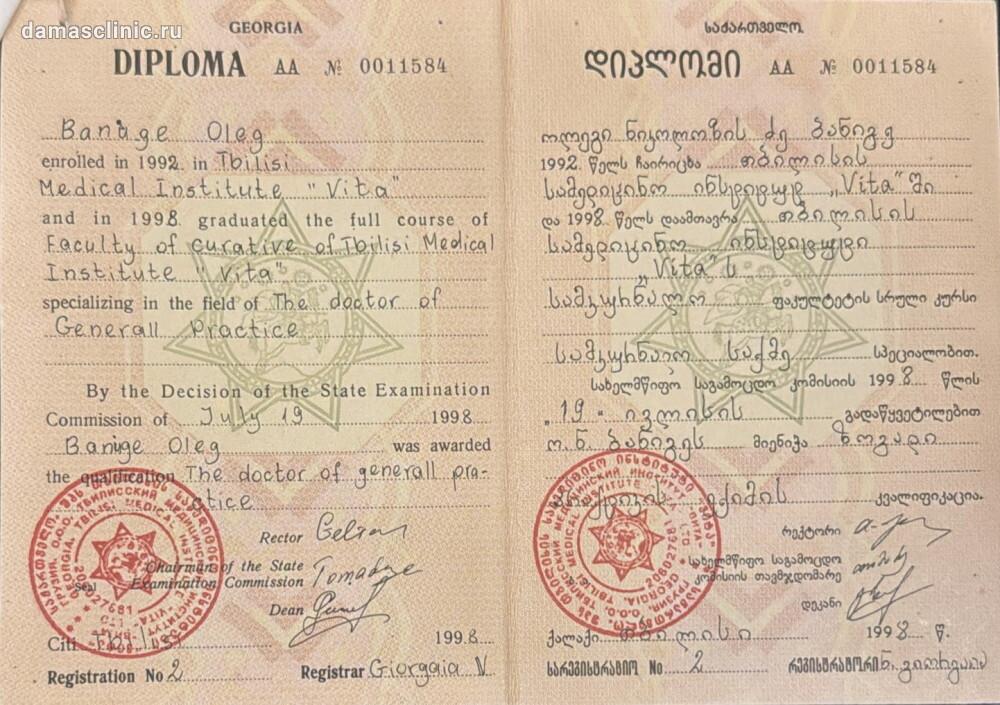 damasclinic.ru
GEORGIA
DIPLOMA AA № 0011584
Banige Oleg
enrolled in 1992 in Tbilisi
Medical Institute "Vita"
and in 1998 graduated the full course of
Faculty of curative of Tbilisi Medical
Institute "Vita"
specializing in the field of The doctor of
Generall Practice
By the Decision of the State Examination
Commission of July 19 1998
Banige Oleg was awarded
the qualification The doctor of generall pra-
ctice
Rector
Chairman of the State
Examination Commission
Dean
Citi Tbilisi 1998
Registration No 2 Registrar Giorgaia V
საქართველო
დიპლომი AA № 0011584
ოლეგი ნიკოლოზის ძე ბანიგე
1992 წელს ჩაირიცხა თბილისის
სამედიცინო ინსტიტუტ „Vita" ში
და 1998 წელს დაამთავრა თბილისის
სამედიცინო ინსტიტუტი
„Vita" ს
სამკურნალო ფაკულტეტის სრული კურსი
სამკურნალო საქმე სპეციალობით.
სახელმწიფო საგამოცდო კომისიის 1998 წლის
„19" ივლისის გადაწყვეტილებით
ო. ნ. ბანიგეს მიენიჭა ზოგადი
პრაქტიკის ექიმის კვალიფიკაცია.
რექტორი
სახელმწიფო საგამოცდო
კომისიის თავმჯდომარე
დეკანი
ქალაქი თბილისი 1998 წ.
სარეგისტრაციო No 2 რეგისტრატორი